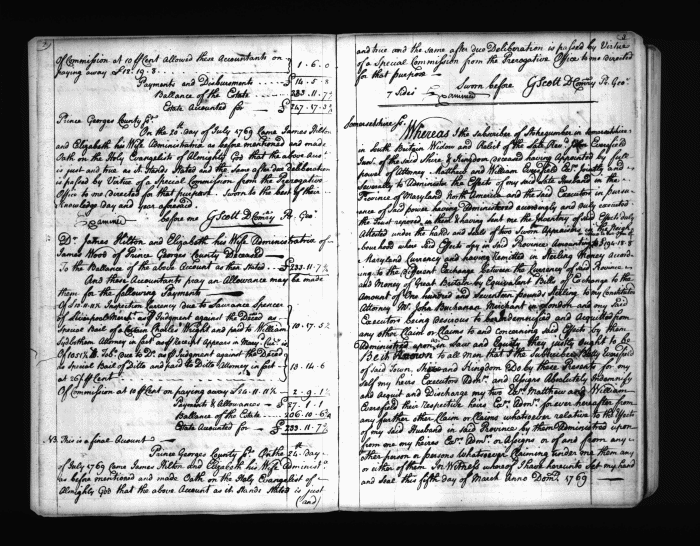 Of Commission at 10 ⅌ Cent Allowed these Accountants on
paying away £12.19.8 1.6.0
Payments and Disbursments £14.5.8
Ballance of the Estate 233.11.7½
Estate Accounted for £247.17.3½
Prince Georges County Sct.
On the 20th day of July 1769 Came James Hilton
and Elizabeth his Wife Administratrix as before mentioned and made
Oath on the Holy Evangelist of Almighty God that the above Acct.
is just and true as it Stands Stated and the same after due deliberation
is passed by Virtue of a Special Commission from the Prerogative
Office to me directed for that purpose. Sworn to the best of their
Knowledge day and year aforesaid
Examined before me G Scott D Comry Pr. Geos.
Dr. James Hilton and Elizabeth his Wife Administratrix of
James Wood of Prince Georges County Deceased
To the Ballance of the above Account as then Stated £233.11.7½
And these Accountants pray an Allowance may be
made them for the following Payments
Of Inspection Currency due to Lawrance Spencer
of Liverpool Mercht. as ⅌ Judgment against the Deced. as
Special Bail of a Certain Charles Wright and paid to William
Lydbotham Attorney in fact as ⅌ Receipt Appears in Mary. Curr. is 10.17.5½
Of Tobo. Due to Do. as ⅌ Judgment against the Deced.
as Special Bail of Ditto and paid to Ditto Attorney in fact
at ⅌ Cent 13.14.6
Of Commission at 10 ⅌ Cent on paying away £24.11.11½ 2.9.1½
Payments & Allowances £27.1.1
Ballance of the Estate 206.10.6½
Estate Accounted for £233.11.7½
NB This is a final Account
Prince Georges County Sct. On the 24th day
of July 1769 Came James Hilton and Elizabeth his Wife Administx.
as before mentioned and made Oath on the Holy Evangelist of
Almighty God that the above Account as it Stands Stated is just
(and)
and true and the same after due Deliberation is passed by Virtue
of a Special Commission from the Prerogative Office to me directed
for that purpose
Sworn before G Scott D Comry Pr. Geos.
7 Sides Examined
Somersetshire Sct.
Whereas I the Subscriber of in Somersetshire
in South Britain Widow and Relict of the late Revd.
of the Shire & Kingdom deceased having Appointed by full
power of Attorney Matthew and William Jointly and
Severally to Administer the Effects of my said late Husband in the
Province of Maryland North America and the said Executors in pursu-
ance of said power having Administered accordingly and duly executed
the Trust reposed in them & having sent me the Inventory of said Effects duly
Attested under the hands and Seals of two Sworn Appraisers in the
hood where said Effects lay in said Province Amounting to
Maryland Currency and having Remitted in Sterling Money accord-
ing to the different Exchange between the Currency of said Province
and Money of Great Britain by Equivalent Bills of Exchange to the
Amount of One hundred and Seventeen pounds Sterling to my Constituted
Attorney Mr. John Buchanan Merchant in London and my said
Executors being desirous to be Indemnified and Acquitted from
any other Claim or Claims to and concerning said Effects by them
Administred upon in Law and Equity they justly ought to be
Be it Known to all men that I the Subscriber Betty
of said Town Shire and Kingdom Do by these Presents for my
self my heirs Executors Admrs. and Assigns Absolutely Indemnify
and Acquit and Discharge my two Exrs. Matthew and William
their Respective heirs Exrs. Admrs. for ever hereafter from
any further other Claim or Claims whatsoever relative to the Effects
of my said Husband in said Province by them Administred upon
from me my heirs Exrs. Admrs. or Assigns or of and from any
other person or persons whatsoever Claiming under me them any
or either of them. In Witness whereof I have hereunto Set my hand
and Seal this fifth day of March Anno Dom. 1769